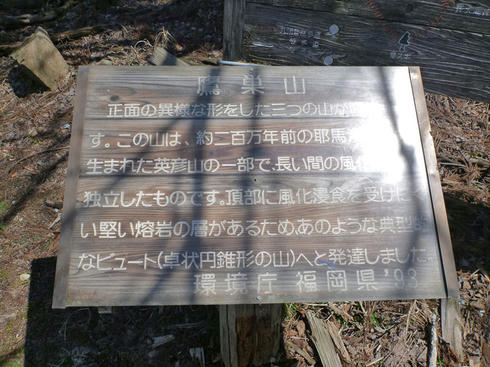 鷹巣山
正面の異様な形をした三つの山が
す。この山は、約二百万年前の耶馬
生まれた英彦山の一部で、長い間の風化
独立したものです。頂部に風化浸食を受けに
い堅い熔岩の層があるため、あのような典型的
なビュート(卓状円錐形の山)へと発達しました。
環境庁 福岡県 '93